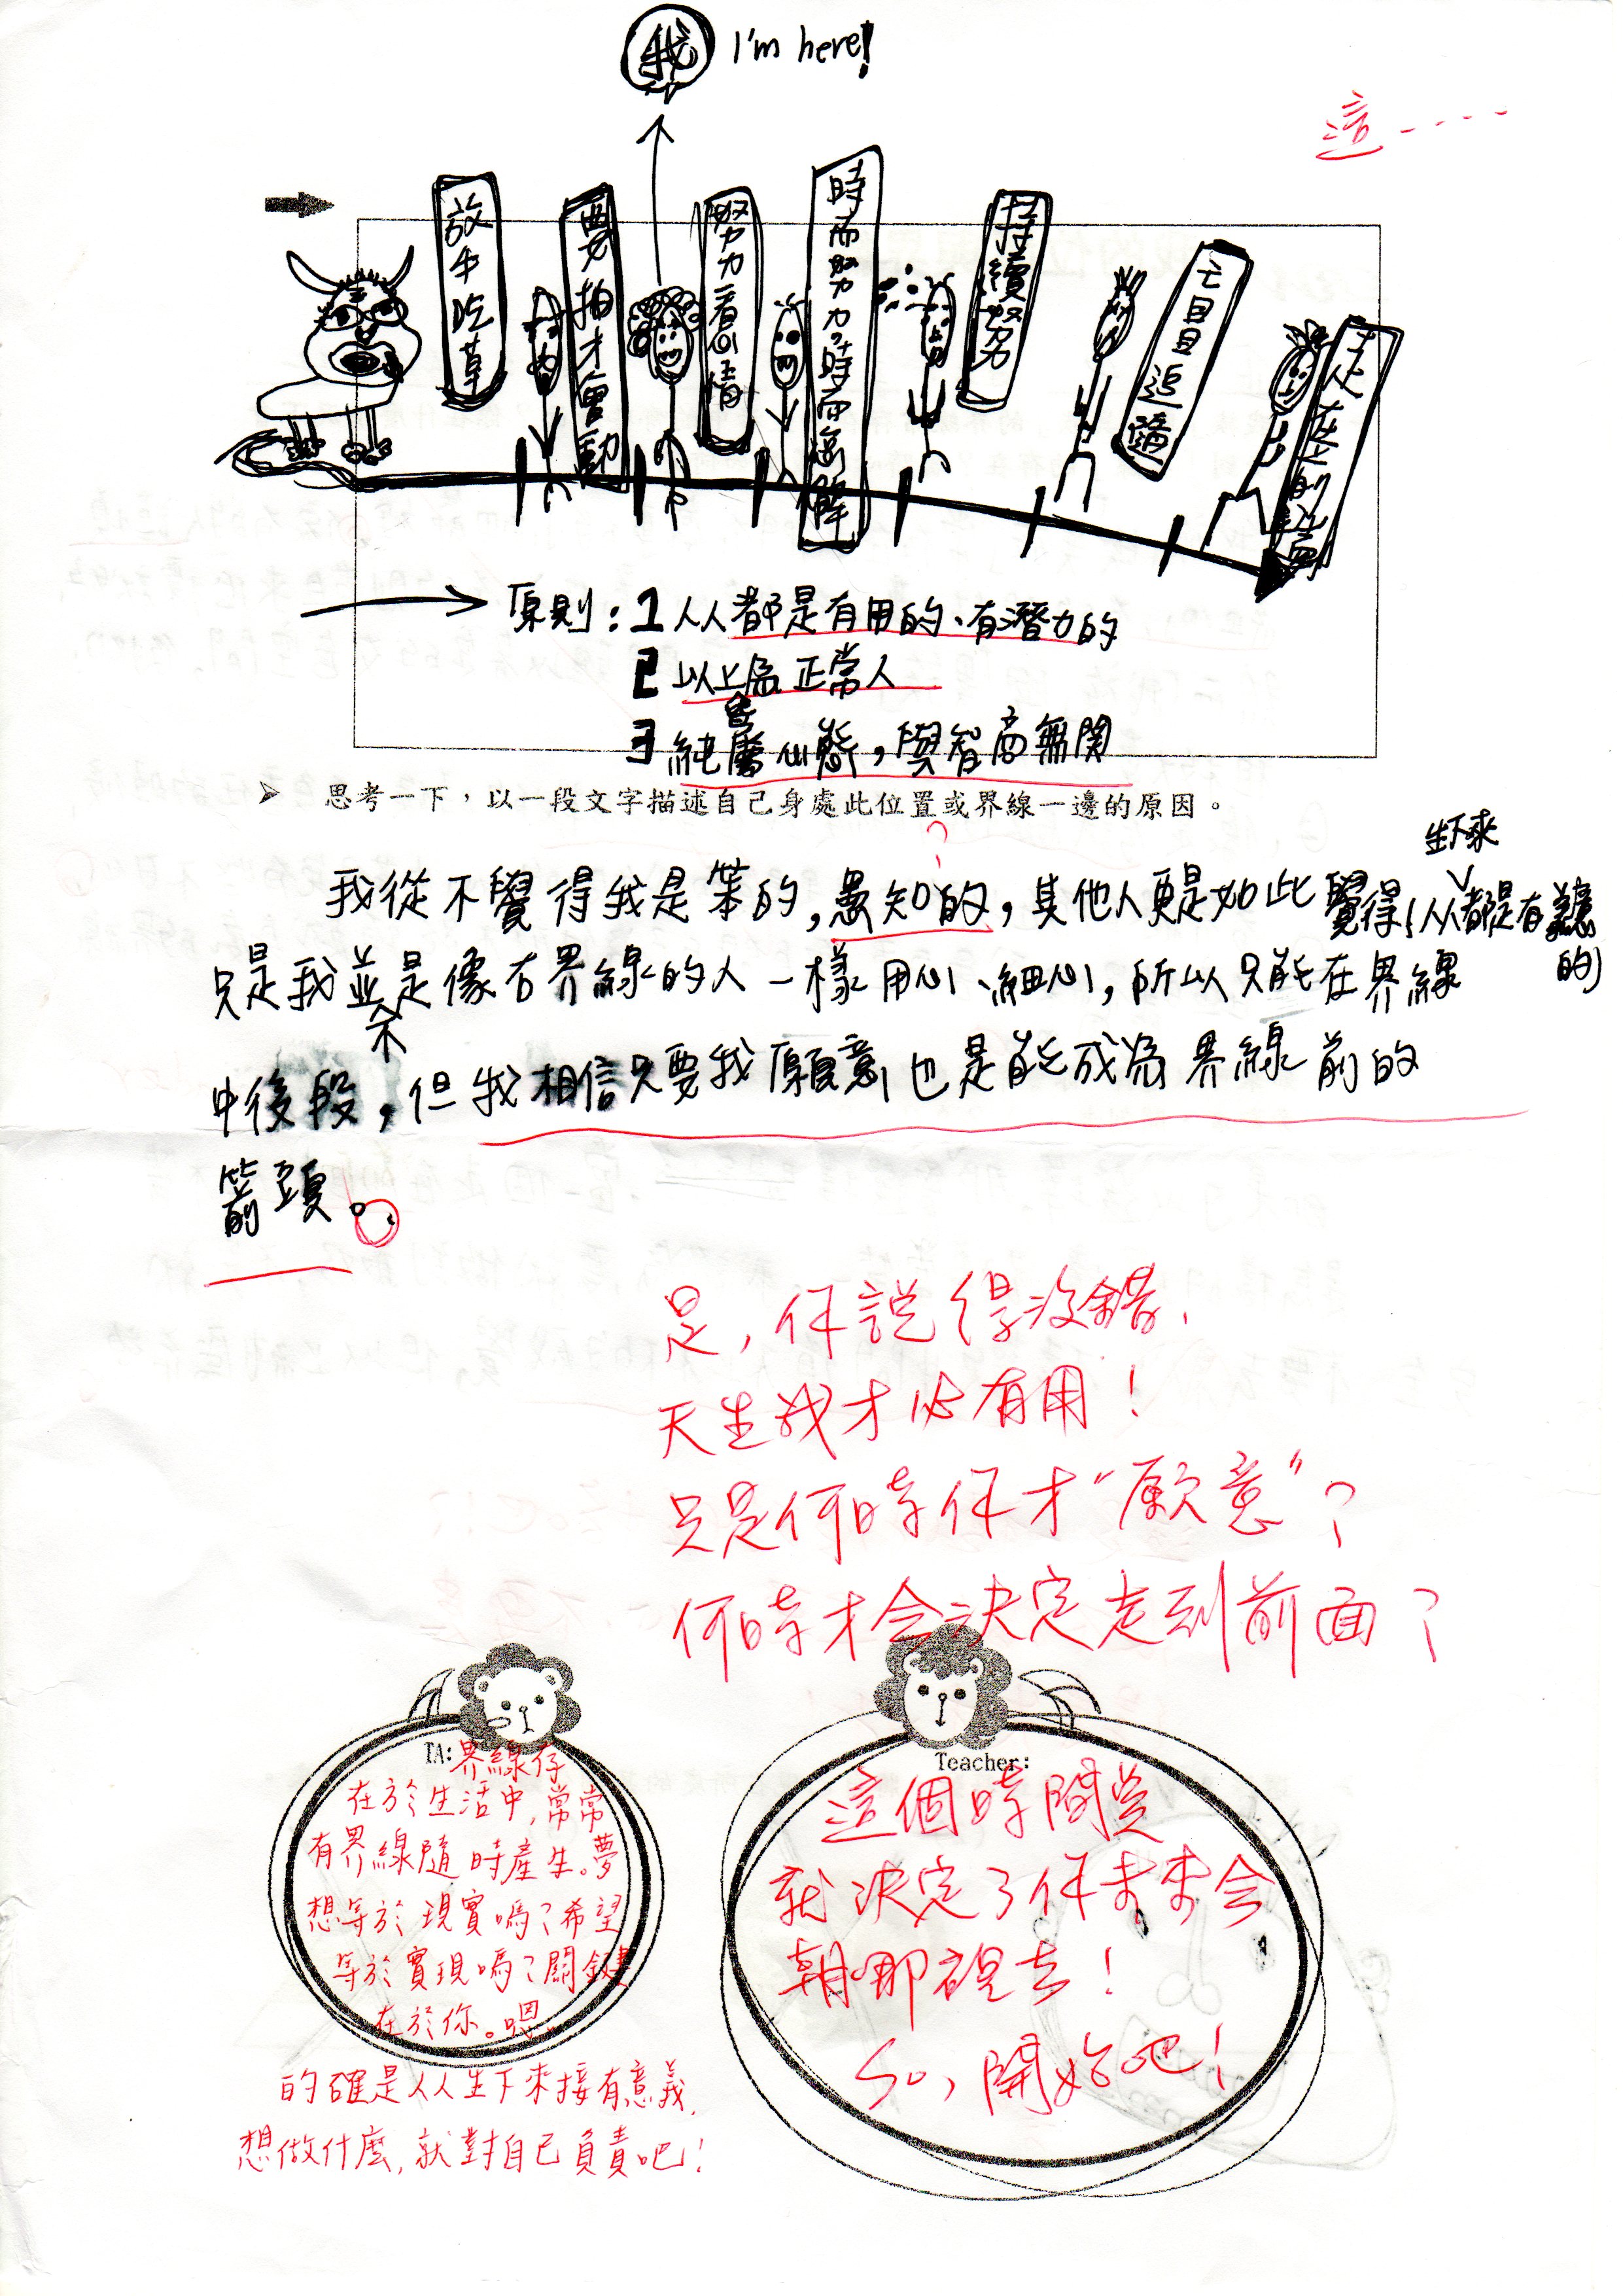 我 I'm here!
這-----
放牛吃草
要拍才會動
努力看心情
時而努力,時而鬆懈
持續努力
亡目目追隨
走在前面
原則：1 人人都是有用的、有潛力的
2 以上為正常人
3 純屬心態，與智商無関
皆
➢ 思考一下，以一段文字描述自己身處此位置或界線一邊的原因。
?
生下來
我從不覺得我是笨的，愚知的，其他人更是如此覺得!人人都是有意義
的
只是我並不是像右界線的人一樣用心、細心，所以只能在界線
中後段，但我相信只要我願意也是能成為界線前的
箭頭。
是，伓說得沒錯，
天生我才必有用！
只是何時伓才“願意”？
何時才会決定走到前面？
TA:界線仔
在於生活中，常常
有界線隨時產生。夢
想等於現實嗎？希望
等於實現嗎？關鍵
在於你。嗯..
的確是人人生下來接有意義，
想做什麼，就對自己負責吧！
Teacher:
這個時間點
就決定了伓未來会
朝哪裡去！
So，開始吧！